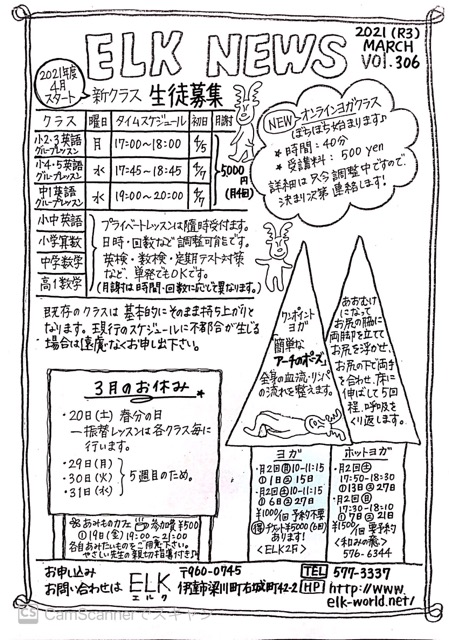 ELK NEWS
2021 (R3)
MARCH
VOL.306
2021年度
4月
スタート
新クラス 生徒募集
クラス 曜日 タイムスケジュール 初日 月謝
小2・3英語 グループレッスン 月 17:00〜18:00 4/5
小4・5英語 グループレッスン 水 17:45〜18:45 4/7
中1英語 グループレッスン 水 19:00〜20:00 4/7
5000円
(月4回)
小中英語
小学算数
中学数学
高1数学
プライベートレッスンは随時受付ます。
日時・回数など調整可能です。
英検・数検・定期テスト対策
など、単発でもOKです。
(月謝は時間・回数に応じて異なります。)
NEW オンラインヨガクラス
ぼちぼち始まります♪
* 時間：40分
* 受講料：500 yen
詳細は只今調整中ですので、
決まり次第連絡します!
既存のクラスは基本的にそのまま持ち上がりと
なります。現行のスケジュールに不都合が生じる
場合は遠慮なくお申し出下さい。
3月のお休み
・20日(土) 春分の日
→振替レッスンは各クラス毎に
行います。
・29日(月)
・30日(火)
・31日(水)
5週目のため。
ワンポイント
ヨガ
簡単な
"アーチのポーズ"
全身の血流・リンパ
の流れを整えます。
あおむけ
になって
お尻の脇に
両脚を立てて
お尻を浮かせ、
お尻の下で両手
を合わせ、床に
伸ばして5回
程、呼吸を
くり返します。
ヨガ
・月2回(月)10-11:15
①1日②15日
・月2回(土)10-11:15
①6日②27日
¥1000/1回 予約不要
得チケット¥5000(6回)
あります!
<ELK2F>
ホットヨガ
・月2回(土)
17:50-18:30
①13日②27日
・月2回(日)
17:30-18:10
①7日②21日
¥1500/1回 要予約
<和みの庵>
576-6344
あみものカフェ 参加費¥500
①19日(金)19:00〜21:00
各自あみたいものをご用意下さい。
やさしい先生の親切指導付き
お申し込み
お問い合わせは
ELK
エルク
〒960-0745
伊達市梁川町右城町42-2
TEL 577-3337
HP http://www.
elk-world.net/
CS CamScannerでスキャン